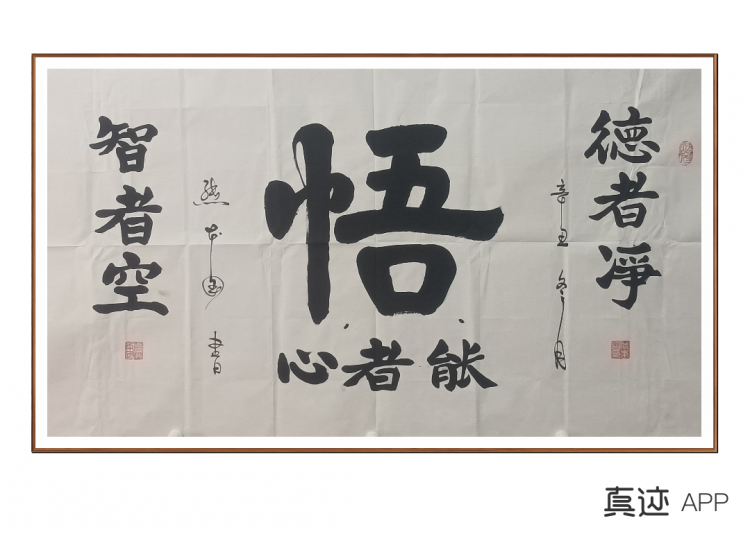 德者凈
辛丑冬月
悟
能者心
本国書
智者空
真迹 APP